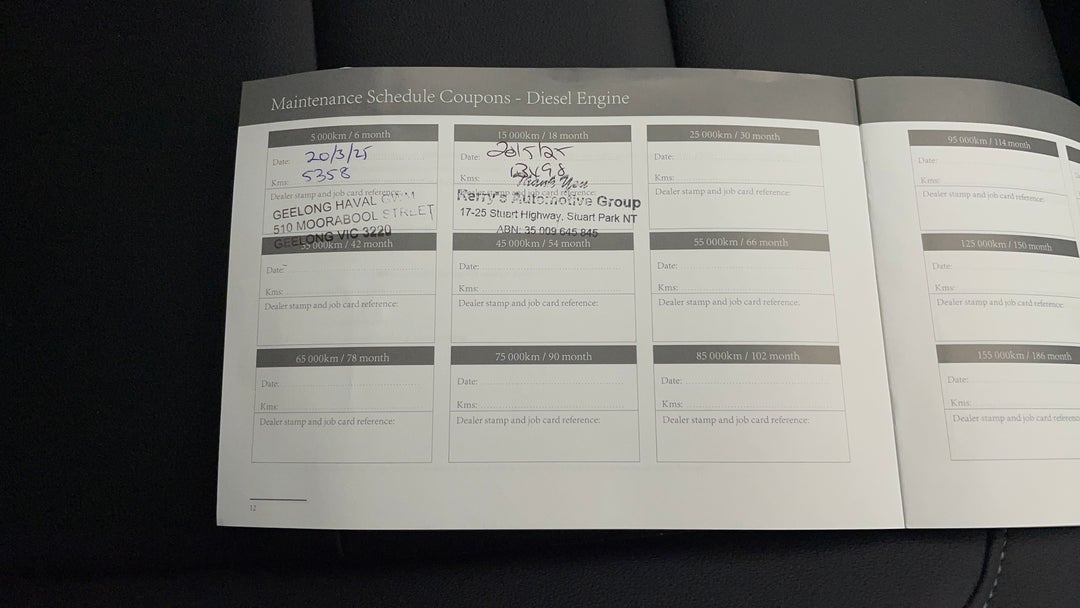 Maintenance Schedule Coupons - Diesel Engine
5 000km / 6 month
Date: 20/3/25
Kms: 5358
Dealer stamp and job card reference:
GEELONG HAVAL GWM
510 MOORABOOL STREET
GEELONG VIC 3220
15 000km / 18 month
Date: 20/5/25
Kms:
Thank You
Dealer stamp and job card reference:
Kerry's Automotive Group
17-25 Stuart Highway, Stuart Park NT
ABN: 35 009 645 845
25 000km / 30 month
Date:
Kms:
Dealer stamp and job card reference:
35 000km / 42 month
Date:
Kms:
Dealer stamp and job card reference:
45 000km / 54 month
Date:
Kms:
Dealer stamp and job card reference:
55 000km / 66 month
Date:
Kms:
Dealer stamp and job card reference:
65 000km / 78 month
Date:
Kms:
Dealer stamp and job card reference:
75 000km / 90 month
Date:
Kms:
Dealer stamp and job card reference:
85 000km / 102 month
Date:
Kms:
Dealer stamp and job card reference:
12
95 000km / 114 month
Date:
Kms:
Dealer stamp and job card reference:
125 000km / 150 month
Date:
Kms:
Dealer stamp and job card reference:
155 000km / 186 month
Date:
Kms:
Dealer stamp and job card reference